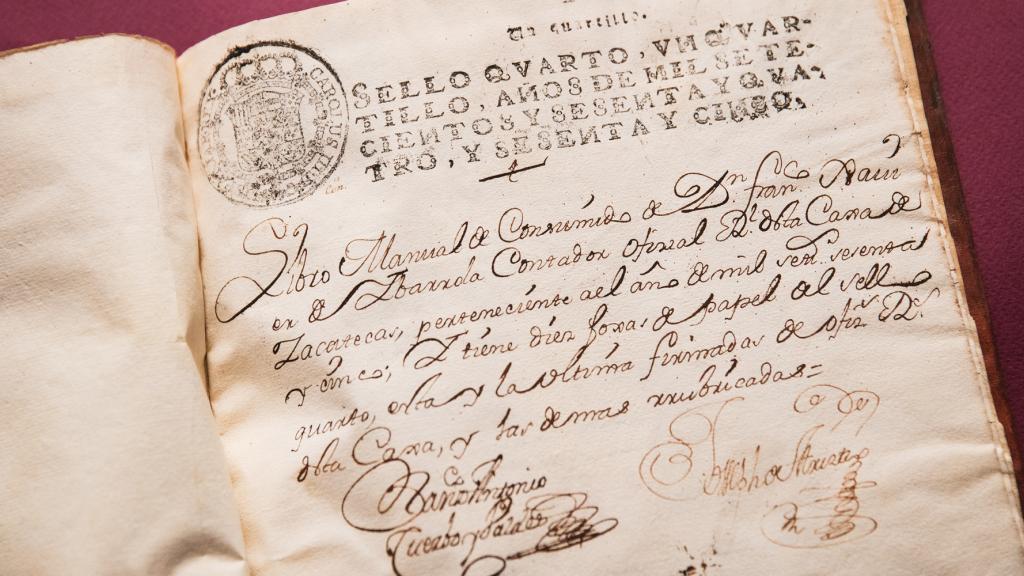 Un quartillo.
SELLO QVARTO, VN QVAR-
TILLO, AÑOS DE MIL SETE-
CIENTOS Y SESENTA Y QVA-
TRO, Y SESENTA Y CINCO.
CAROLUS III
Libro Manual de Consumido de Dn. franco. Xavi
er de Ybarrola Contador ofizial Rl. desta Caxa de
Zacatecas, perteneciente a el año de mil sets. sesenta
y cinco; Y tiene diez foxas de papel del sello
quarto, esta y la ultima firmadas de ofizs. Rs.
desta Caxa, y las demas rrubricadas=
Antonio
Cuerbo y